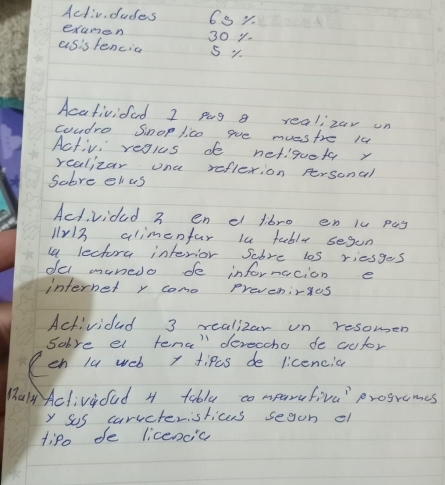 Actividades 65 %
examen 30 %
asistencia 5 %
Acatividad 1 pag 8 realizar un
cuadro Sinoptico que muestre la
Activi reglas de netiqueta y
realizar una reflexion Personal
Sobre ellas
Actividad 2 en el libro en la Pag
11x12 alimentar la tabla segun
la lectura interior Sobre los riesgos
del manejo de informacion e
internet y como Prevenirlos
Actividad 3 realizar un resomen
Sobre el tema" derecho de autor
en la web y tipos de licencia
Actividad 4 tabla comparativa" programas
y sus caracteristicas segun el
tipo de licencia